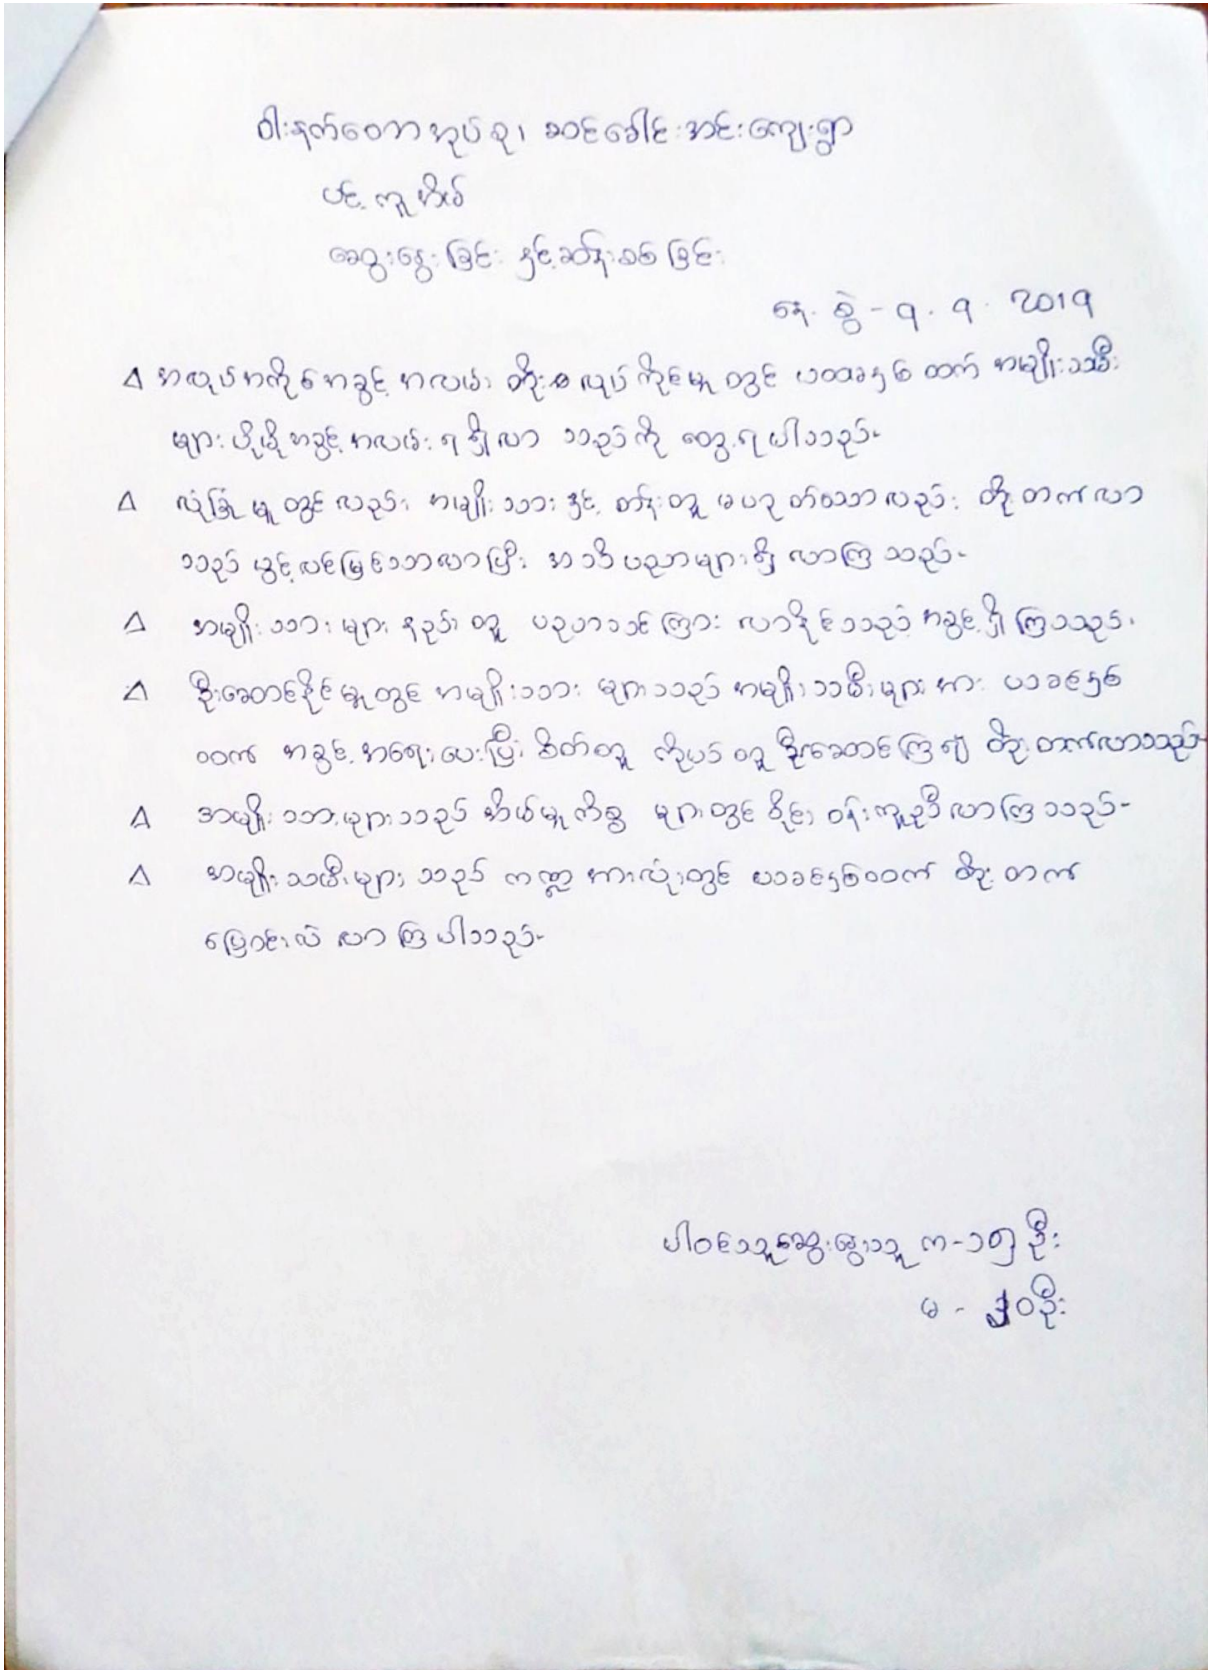 ဝါးနက်တောအုပ်စု၊ ဆင်ခေါင်းအင်းကျေးရွာ
ပင့်ကူအိမ်
ဆွေးနွေးခြင်း နှင့်ဆန်းစစ်ခြင်း
နေ့စွဲ - ၅.၅.2019
△ အလုပ်အကိုင်အခွင့်အလမ်း တိုးစလုပ်ကိုင်မှုတွင် ပထမနှစ်ထက် အမျိုးသမီး
များ ပိုမိုအခွင့်အလမ်းရရှိလာသည်ကို တွေ့ရပါသည်။
△ လုံခြုံမှုတွင်လည်း အမျိုးသားနှင့် တန်းတူ မဟုတ်သော်လည်း တိုးတက်လာ
သည် ပွင့်လင်းမြင်သာလာပြီး အသိပညာများရှိလာကြသည်။
△ အမျိုးသားများနည်းတူ ပညာသင်ကြားလာနိုင်သည့်အခွင့်ရှိကြသည်။
△ ဦးဆောင်နိုင်မှုတွင် အမျိုးသားများသည် အမျိုးသမီးများအား ယခင်နှစ်
ထက် အခွင့်အရေးပေးပြီး စိတ်တူကိုယ်တူ ဦးဆောင်ကြ၍ တိုးတက်လာသည်။
△ အမျိုးသားများသည် အိမ်မှုကိစ္စများတွင် ဝိုင်းဝန်းကူညီလာကြသည်။
△ အမျိုးသမီးများသည် ကဏ္ဍအားလုံးတွင် ယခင်နှစ်ထက် တိုးတက်
ပြောင်းလဲလာကြပါသည်။
ပါဝင်သူဆွေးနွေးသူ က-၁၅ ဦး
မ - ၂၀ဦး